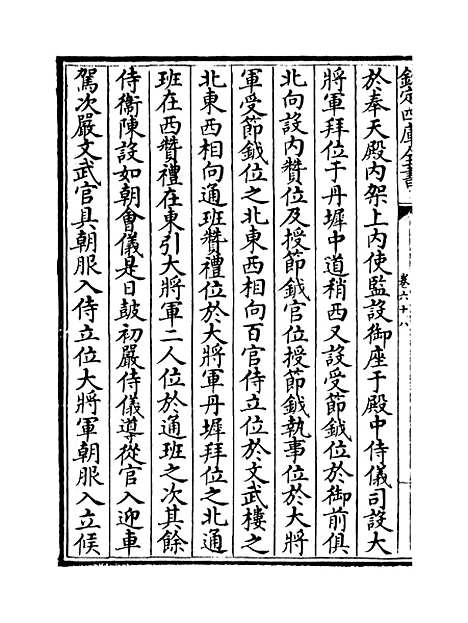 欽定四庫全書
卷六十八
於奉天殿内架上内使監設御座于殿中侍儀司設大
將軍拜位于丹墀中道稍西又設受節鉞位於御前俱
北向設内贊位及授節鉞官位授節鉞執事位於大將
軍受節鉞位之北東西相向百官侍立位於文武樓之
北東西相向通班贊禮位於大將軍丹墀拜位之北通
班在西贊禮在東引大將軍二人位於通班之次其餘
侍衞陳設如朝會儀是日鼓初嚴侍儀導從官入迎車
駕次嚴文武官具朝服入侍立位大將軍朝服入立候